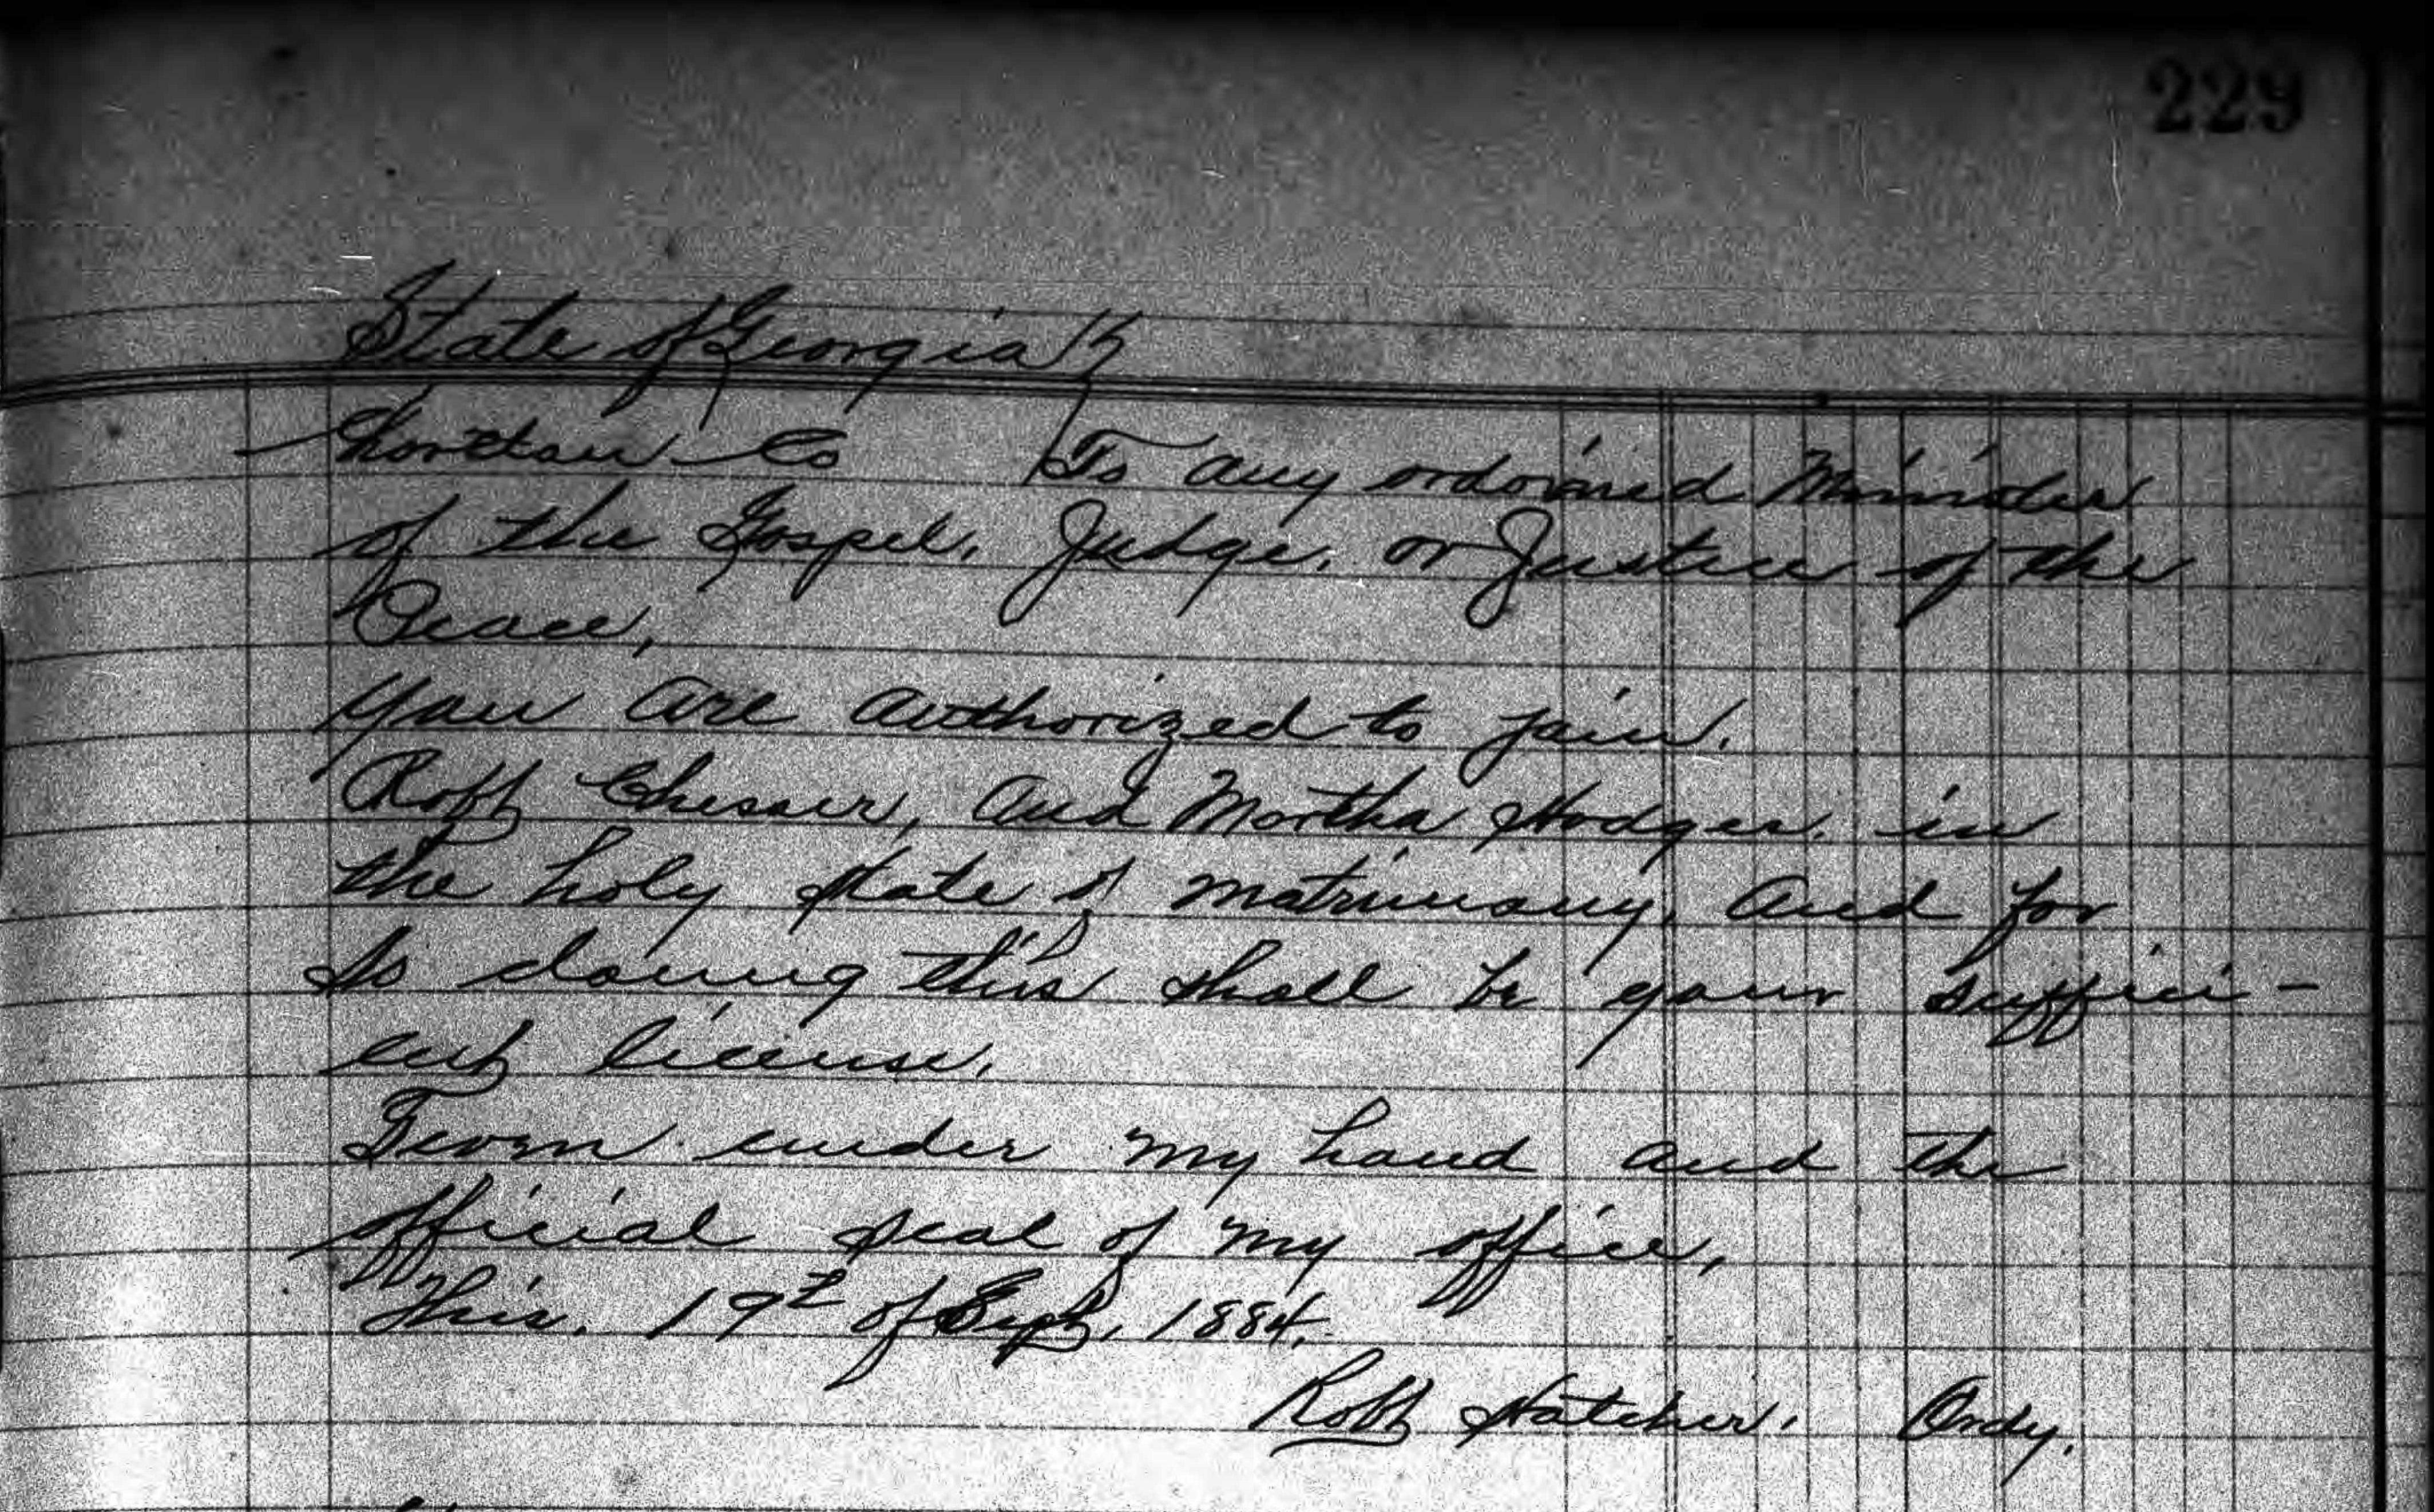 229
State of Georgia
Charlton Co To any ordained Minister
of the Gospel, Judge, or Justice of the
Peace,
You are authorized to join.
Robt Chesser, and Martha Hodges. in
the holy state of matrimony, and for
so doing this shall be your suffici-
ent license.
under my hand and the
official seal of my office,
This. 19t of Sept, 1884.
Robt Hatcher. Ordy.